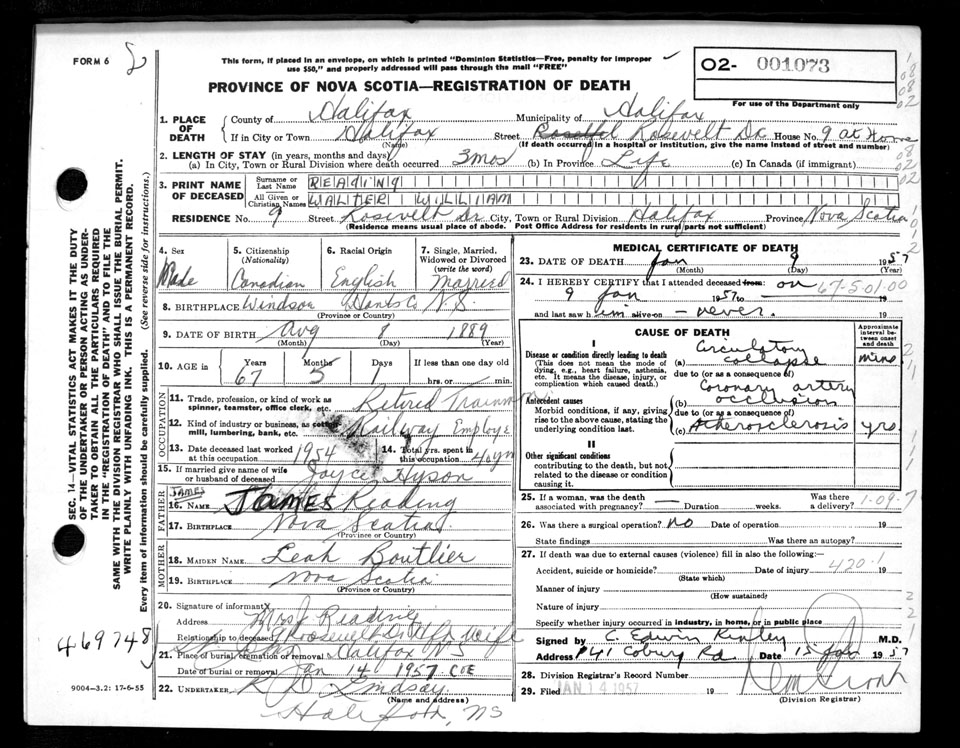 FORM 6
This form, if placed in an envelope, on which is printed "Dominion Statistics—Free, penalty for improper
use $50," and properly addressed will pass through the mail "FREE"
02- 001073
For use of the Department only
PROVINCE OF NOVA SCOTIA—REGISTRATION OF DEATH
1. PLACE OF DEATH
County of Halifax Municipality of Halifax
If in City or Town Halifax Street Rosevelt Dr. House No. 9 at Home
(Name) (If death occurred in a hospital or institution, give the name instead of street and number)
2. LENGTH OF STAY (in years, months and days)
(a) In City, Town or Rural Division where death occurred 3 mos (b) In Province Life (c) In Canada (if immigrant)
3. PRINT NAME OF DECEASED
Surname or Last Name READING
All Given or Christian Names WALTER WILLIAM
RESIDENCE No. 9 Street Rosevelt Dr City, Town or Rural Division Halifax Province Nova Scotia
(Residence means usual place of abode. Post Office Address for residents in rural parts not sufficient)
4. Sex Male
5. Citizenship (Nationality) Canadian
6. Racial Origin English
7. Single, Married, Widowed or Divorced (write the word) Married
8. BIRTHPLACE Windsor Hants Co N.S.
(Province or Country)
9. DATE OF BIRTH Aug 8 1889
(Month) (Day) (Year)
10. AGE in Years 67 Months 5 Days 1 If less than one day old
hrs. or min.
OCCUPATION
11. Trade, profession, or kind of work as spinner, teamster, office clerk, etc. Retired Trainman
12. Kind of industry or business, as cotton mill, lumbering, bank, etc. Railway Employe
13. Date deceased last worked at this occupation 1954
14. Total yrs. spent in this occupation 40 yrs
15. If married give name of wife or husband of deceased Joyce Hyson
FATHER
JAMES
16. NAME JAMES Reading
17. BIRTHPLACE Nova Scotia
(Province or Country)
MOTHER
18. MAIDEN NAME Leah Boutlier
19. BIRTHPLACE Nova Scotia
(Province or Country)
20. Signature of informant Mrs J Reading
Address
Relationship to deceased 9 Roosevelt Dr Wife
21. Place of burial, cremation or removal Halifax NS
Date of burial or removal Jan 14 1957
22. UNDERTAKER Lindsay
(Name and address)
Halifax, NS
MEDICAL CERTIFICATE OF DEATH
23. DATE OF DEATH Jan 9 1957
(Month) (Day) (Year)
24. I HEREBY CERTIFY that I attended deceased from: on
9 Jan 1957 to 19
67-5-01-00
and last saw him alive on — never. 19
CAUSE OF DEATH
Approximate interval between onset and death
I
Disease or condition directly leading to death
(This does not mean the mode of dying, e.g., heart failure, asthenia, etc. It means the disease, injury, or complication which caused death.)
(a) Circulatory collapse mins
due to (or as a consequence of)
Antecedent causes
Morbid conditions, if any, giving rise to the above cause, stating the underlying condition last.
(b) Coronary artery occlusion
due to (or as a consequence of)
(c) Atherosclerosis yrs
II
Other significant conditions
contributing to the death, but not related to the disease or condition causing it.
25. If a woman, was the death associated with pregnancy? — Duration weeks. Was there a delivery?
1-09-7
26. Was there a surgical operation? no Date of operation 19
State findings Was there an autopsy?
27. If death was due to external causes (violence) fill in also the following:—
Accident, suicide or homicide? Date of injury 19
(State which)
420.1
Manner of injury
(How sustained)
Nature of injury
Specify whether injury occurred in industry, in home, or in public place
Signed by C. Edwin Kinley M.D.
Address 41 Coburg Rd. Date 15 Jan 1957
28. Division Registrar's Record Number
29. Filed JAN 14 1957 19
(Division Registrar)
SEC. 14—VITAL STATISTICS ACT MAKES IT THE DUTY
OF THE UNDERTAKER OR PERSON ACTING AS UNDER-
TAKER TO OBTAIN ALL THE PARTICULARS REQUIRED
IN THE "REGISTRATION OF DEATH" AND TO FILE THE
SAME WITH THE DIVISION REGISTRAR WHO SHALL ISSUE THE BURIAL PERMIT.
WRITE PLAINLY WITH UNFADING INK. THIS IS A PERMANENT RECORD.
Every item of information should be carefully supplied. (See reverse side for instructions.)
469748
9004-3.2: 17-6-55